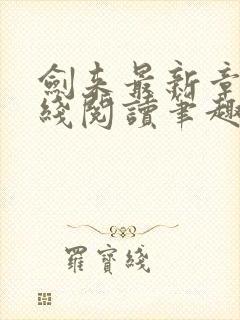 劍来最新章
綫閱讀筆趣
羅寶綫